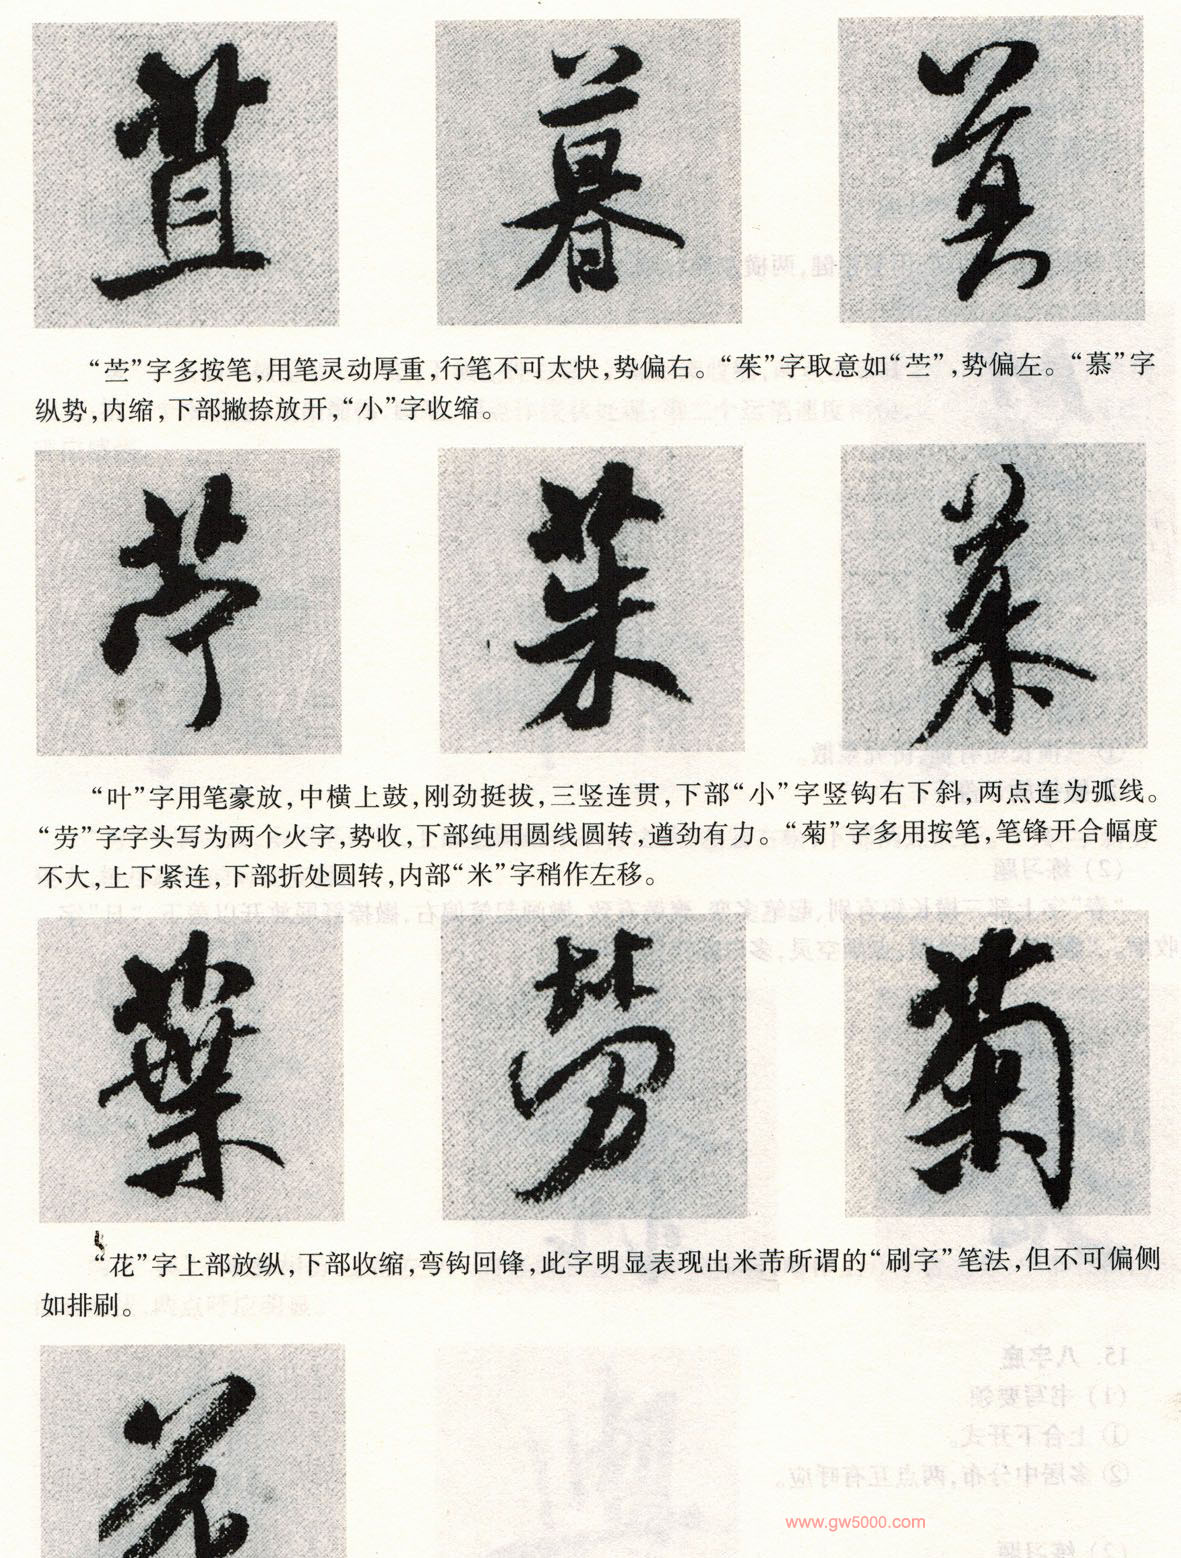 苴 暮
“苎”字多按笔,用笔灵动厚重,行笔不可太快,势偏右。“茱”字取意如“苎”,势偏左。“慕”字
纵势,内缩,下部撇捺放开,“小”字收缩。
苧 茱 慕
“叶”字用笔豪放,中横上鼓,刚劲挺拔,三竖连贯,下部“小”字竖钩右下斜,两点连为弧线。
“劳”字字头写为两个火字,势收,下部纯用圆线圆转,遒劲有力。“菊”字多用按笔,笔锋开合幅度
不大,上下紧连,下部折处圆转,内部“米”字稍作左移。
葉 勞 菊
“花”字上部放纵,下部收缩,弯钩回锋,此字明显表现出米芾所谓的“刷字”笔法,但不可偏侧
如排刷。
花
www.gw5000.com